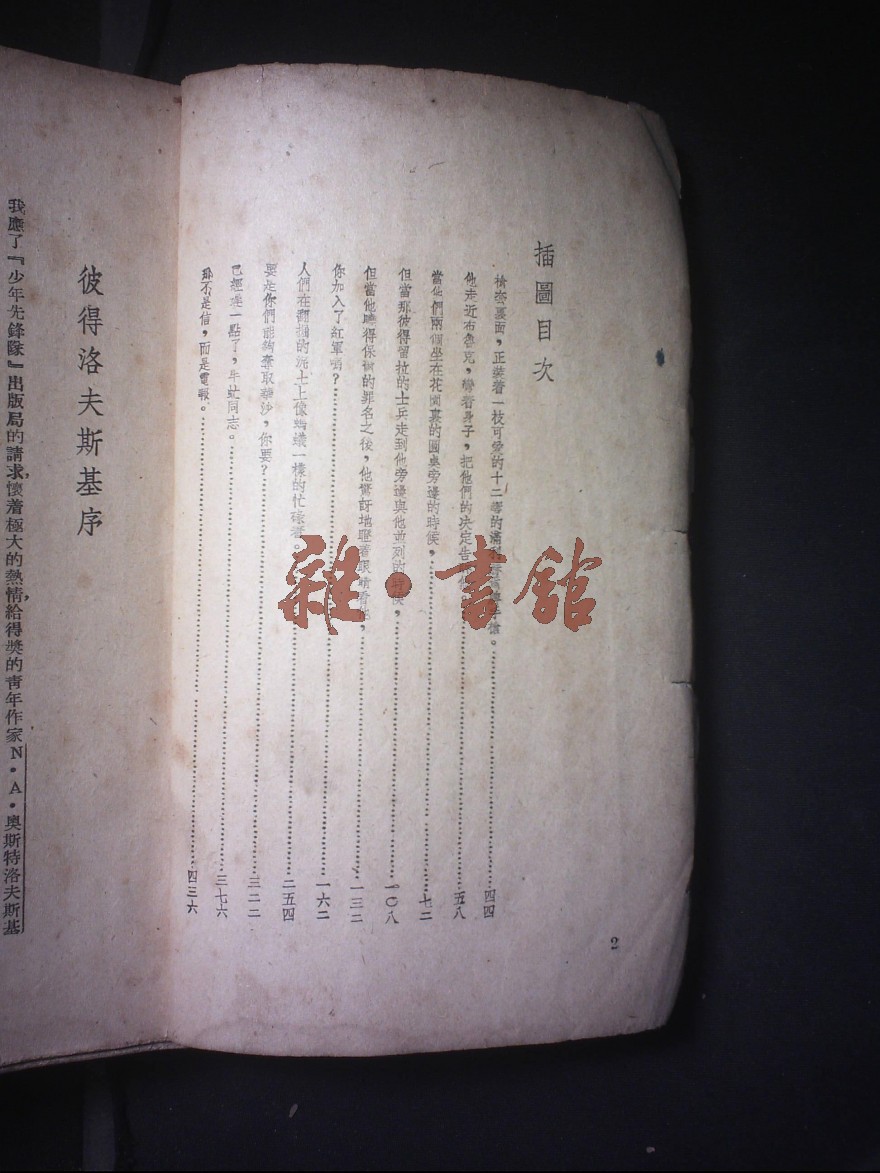 插圖目次
槍套裏面，正裝着一枝可愛的十二響的
槍。四四
他走近布魯克，彎着身子，把他們的決定告
五八
當他們兩個坐在花園裏的圓桌旁邊的時候，七二
但當那彼得留拉的士兵走到他旁邊與他並列的時候，一〇八
但當他曉得保爾的罪名之後，他驚訝地睜着眼睛看 ，一三二
你加入了紅軍嗎？一六二
人們在翻掘的泥土上像螞蟻一樣的忙碌着。二五四
要是你們能夠奪取華沙，你要？三二二
已經是一點了，牛虻同志。三七六
那不是信，而是電報。四三六
2
彼得洛夫斯基序
我應了『少年先鋒隊』出版局的請求，懷着極大的熱情，給得獎的青年作家N·A·奧斯特洛夫斯基
雜·書館